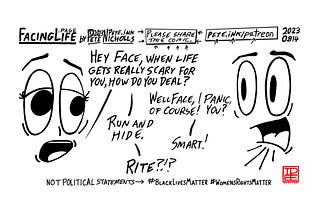 FACINGLIFE
PAGE
BY
PETE.INK
PETE NICHOLLS
PLEASE SHARE
THIS COMIC.
PETE.INK/PATREON
2023
0814
HEY FACE, WHEN LIFE
GETS REALLY SCARY FOR
YOU, HOW DO YOU DEAL?
WELL FACE, I PANIC,
OF COURSE! YOU?
RUN AND
HIDE.
SMART!
RITE?!?
NOT POLITICAL STATEMENTS → #BLACKLIVESMATTER #WOMENSRIGHTSMATTER